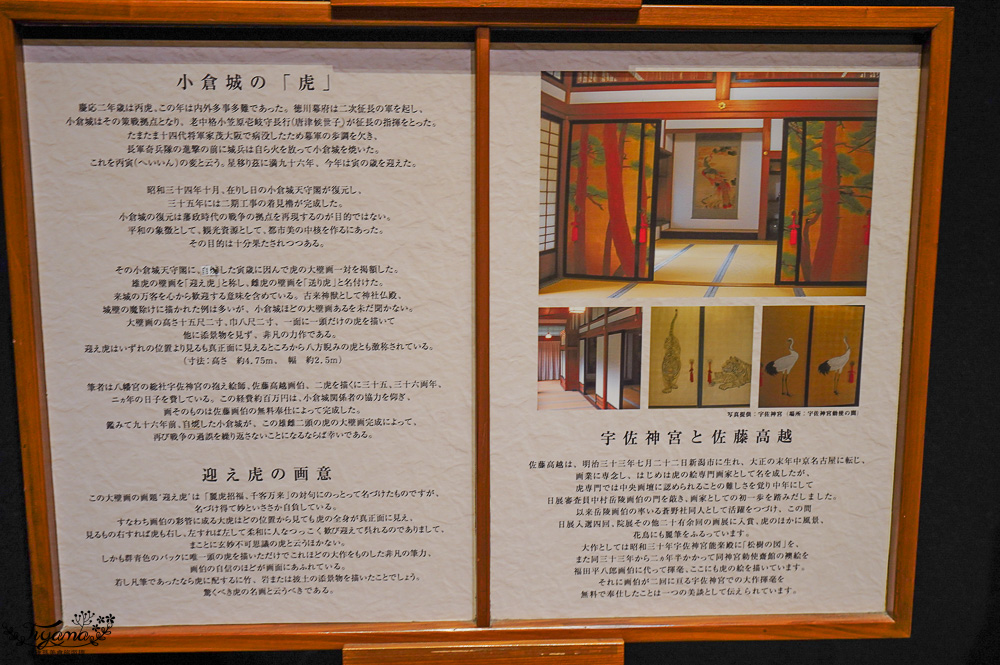 小倉城の「虎」
慶応二年歳は丙虎、この年は内外多事多難であった。徳川幕府は二次征長の軍を起し、
小倉城はその策戦拠点となり、老中格小笠原壱岐守長行(唐津候世子)が征長の指揮をとった。
たまたま十四代将軍家茂大阪で病没したため幕軍の歩調を欠き、
長軍奇兵隊の進撃の前に城兵は自ら火を放って小倉城を焼いた。
これを丙寅(へいいん)の変と云う。星移り茲に満九十六年、今年は寅の歳を迎えた。
昭和三十四年十月、在りし日の小倉城天守閣が復元し、
三十五年には二期工事の着見櫓が完成した。
小倉城の復元は藩政時代の戦争の拠点を再現するのが目的ではない。
平和の象徴として、観光資源として、都市美の中核を作るにあった。
その目的は十分果たされつつある。
その小倉城天守閣に、自焼した寅歳に因んで虎の大壁画一対を掲額した。
雄虎の壁画を「迎え虎」と称し、雌虎の壁画を「送り虎」と名付けた。
来城の万客を心から歓迎する意味を含めている。古来神獣として神社仏殿、
城壁の魔除けに描かれた例は多いが、小倉城ほどの大壁画あるを未だ聞かない。
大壁画の高さ十五尺二寸、巾八尺二寸、一面に一頭だけの虎を描いて
他に添景物を見ず、非凡の力作である。
迎え虎はいずれの位置より見るも真正面に見えるところから八方睨みの虎とも激称されている。
(寸法:高さ 約4.75m、 幅 約2.5m)
筆者は八幡宮の総社宇佐神宮の抱え絵師、佐藤高越画伯、二虎を描くに三十五、三十六両年、
二ヵ年の日子を費している。この経費約百万円は、小倉城関係者の協力を仰ぎ、
画そのものは佐藤画伯の無料奉仕によって完成した。
鑑みて九十六年前、自焼した小倉城が、この雄雌二頭の虎の大壁画完成によって、
再び戦争の過誤を繰り返さないことになるならば幸いである。
迎え虎の画意
この大壁画の画題"迎え虎"は「風虎招福、千客万来」の対句にのっとって名づけたものですが、
名づけ得て妙といささか自負している。
すなわち画伯の彩管に成る大虎はどの位置から見ても虎の全身が真正面に見え、
見るもの右すれば虎も右し、左すれば左して柔和に人なつっこく歓び迎えて呉れるのでありまして、
まことに玄妙不可思議の虎と云うほかない。
しかも群青色のバックに唯一頭の虎を描いただけでこれほどの大作をものした非凡の筆力、
画伯の自信のほどが画面にあふれている。
若し凡筆であったなら虎に配するに竹、岩または披土の添景物を描いたことでしょう。
驚くべき虎の名画と云うべきである。
写真提供:宇佐神宮(場所:宇佐神宮勅使の間)
宇佐神宮と佐藤高越
佐藤高越は、明治三十三年七月二十二日新潟市に生れ、大正の末年中京名古屋に転じ、
画業に専念し、はじめは虎の絵専門画家として名を成したが、
虎専門では中央画壇に認められることの難しさを覚り中年にして
日展審査員中村岳陵画伯の門を敲き、画家としての初一歩を踏みだしました。
以来岳陵画伯の率いる蒼野社同人として活躍をつづけ、この間
日展入選四回、院展その他二十有余回の画展に入賞、虎のほかに風景、
花鳥にも麗筆をふるっています。
大作としては昭和三十年宇佐神宮能楽殿に「松樹の図」を、
また同三十三年から二ヵ年半かかって同神宮勅使齋館の襖絵を
福田平八郎画伯に代って揮毫、ここにも虎の絵を描いています。
それに画伯が二回に亘る宇佐神宮での大作揮毫を
無料で奉仕したことは一つの美談として伝えられています。